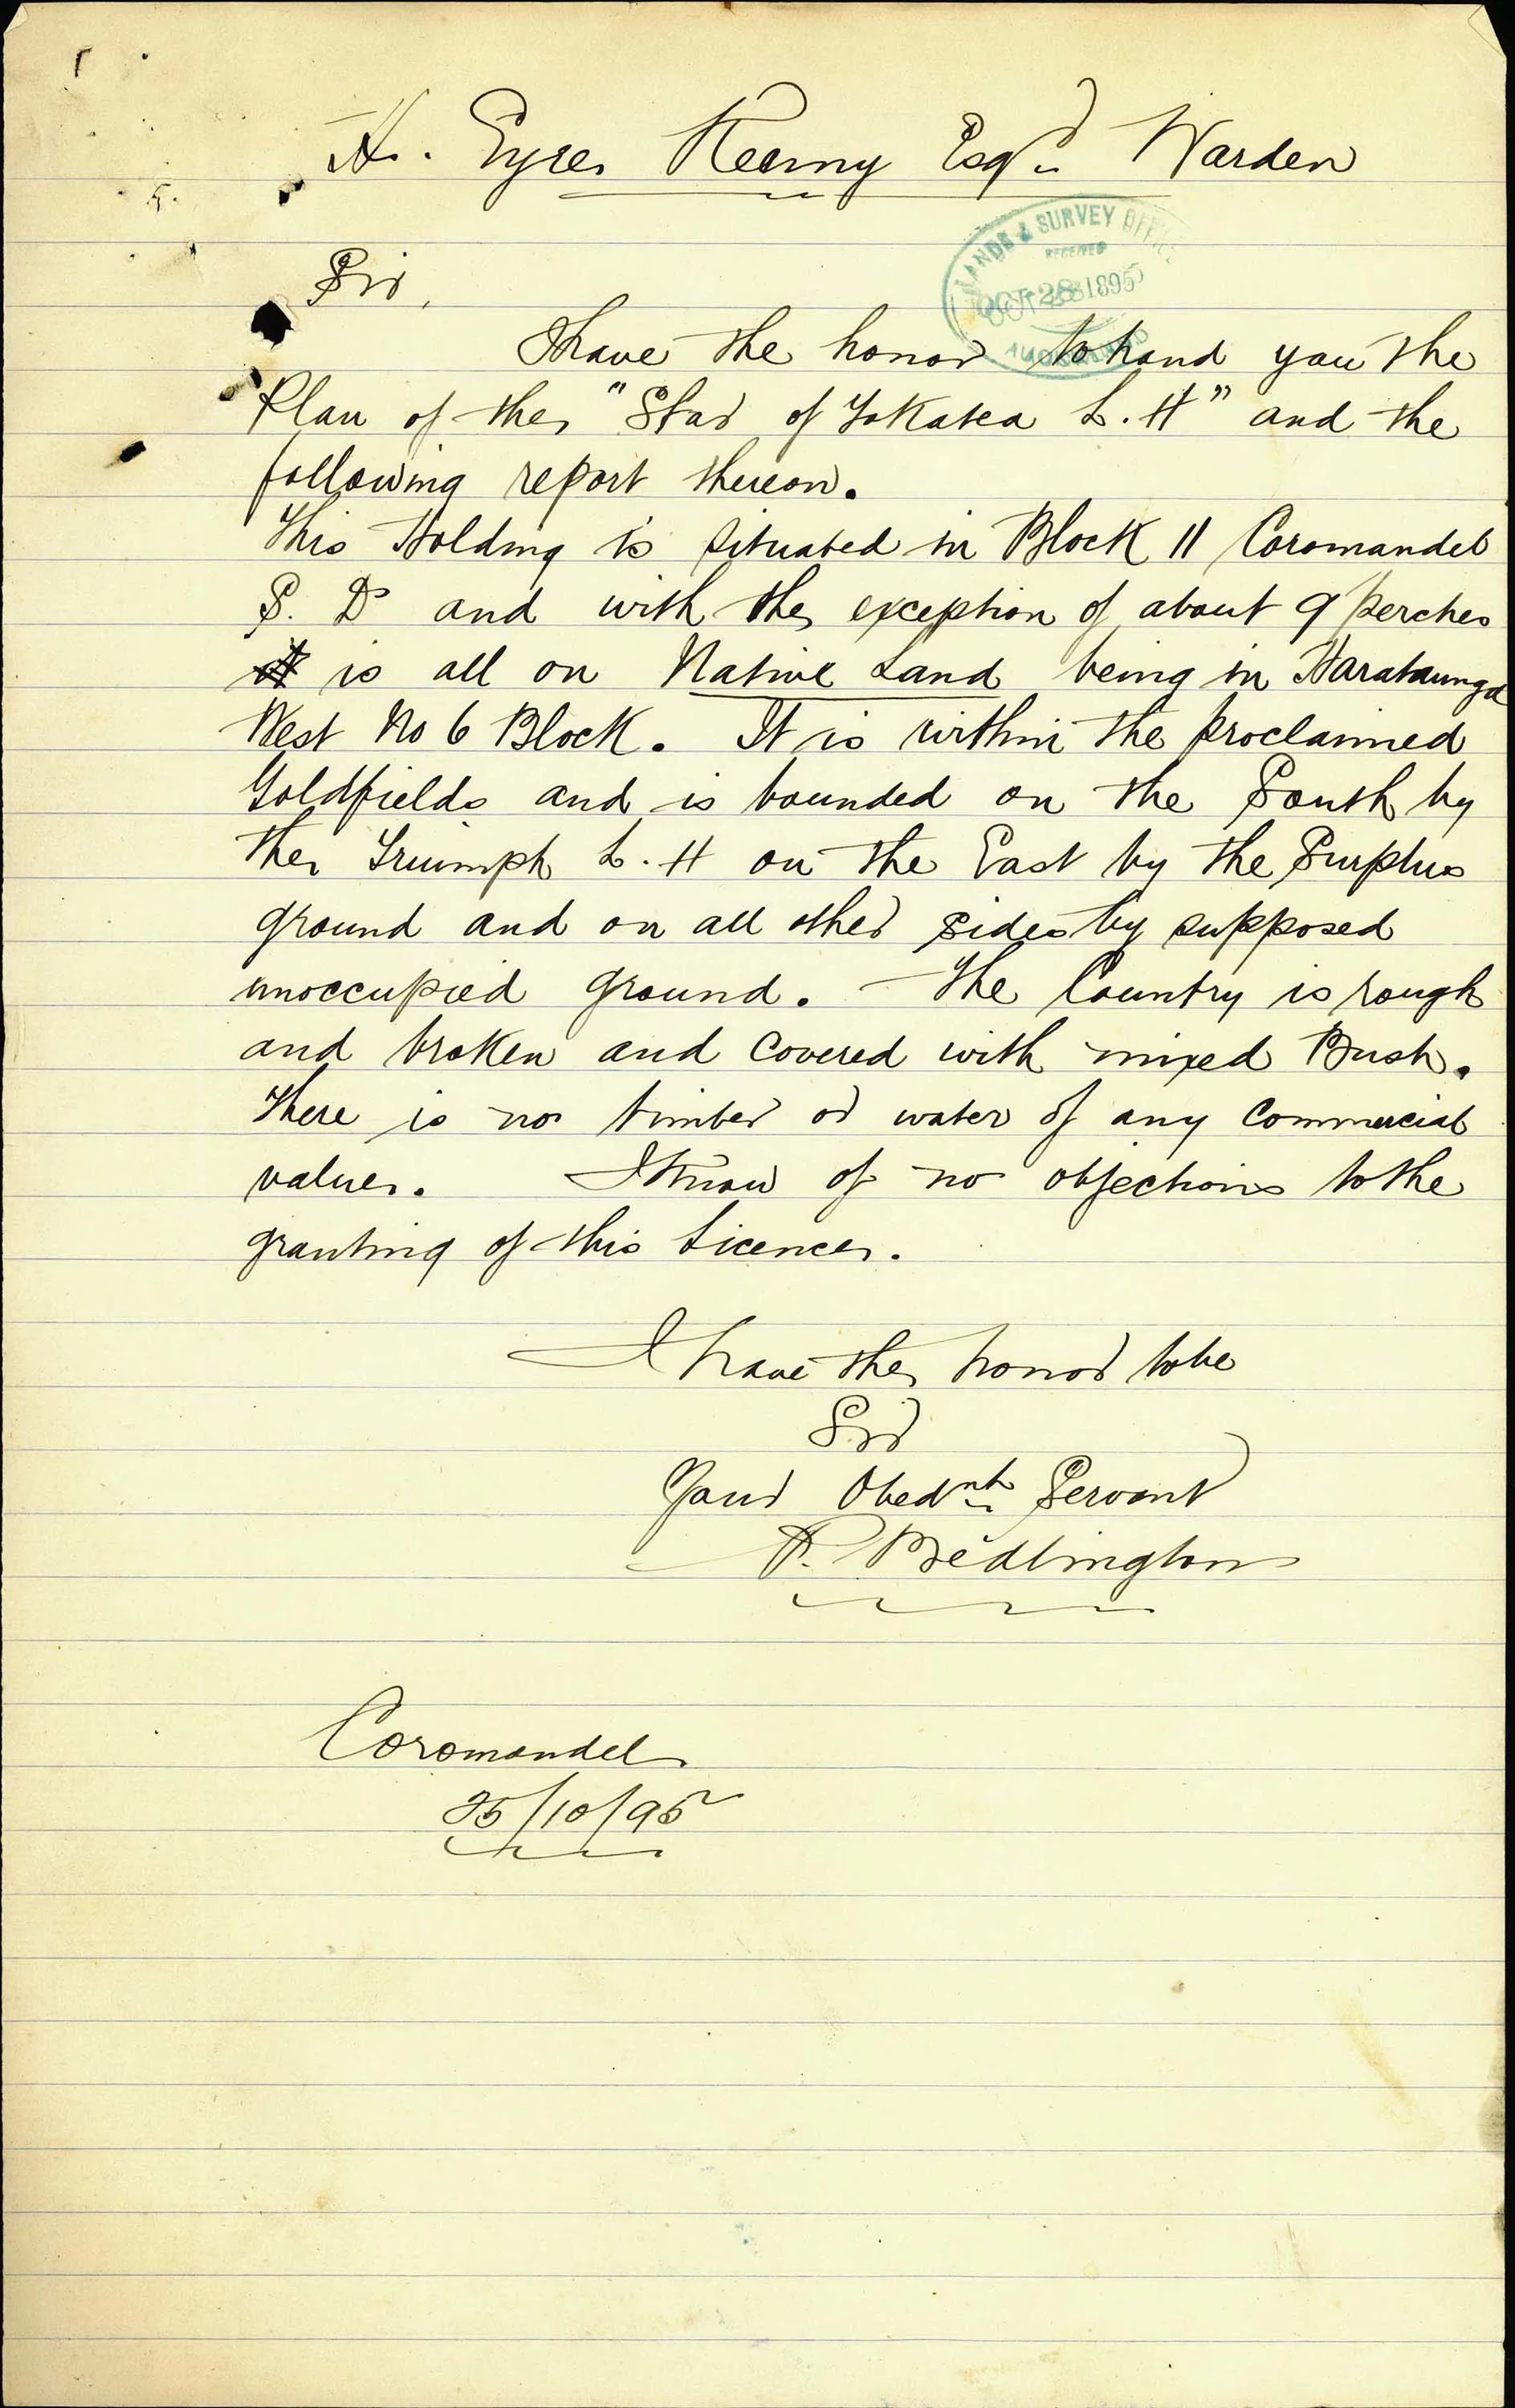 H. Eyre Kenny Esqr Warden
LANDS & SURVEY OFFICE
RECEIVED
OCT 28 1895
AUCKLAND
Sir,
I have the honor to hand you the
Plan of the "Star of Tokatea L.H" and the
following report thereon.
This Holding is situated in Block 11 Coromandel
S. D and with the exception of about 9 perches
it is all on Native Land being in Harataunga
West No 6 Block. It is within the proclaimed
Goldfields and is bounded on the South by
the Triumph L.H on the East by the Surplus
ground and on all other sides by supposed
unoccupied ground. - The Country is rough
and broken and covered with mixed Bush.
There is no timber or water of any commercial
value. I know of no objections to the
granting of this Licence.
I have the honor to be
Sir
Your Obednt Servant
Bedlington
Coromandel
25/10/95